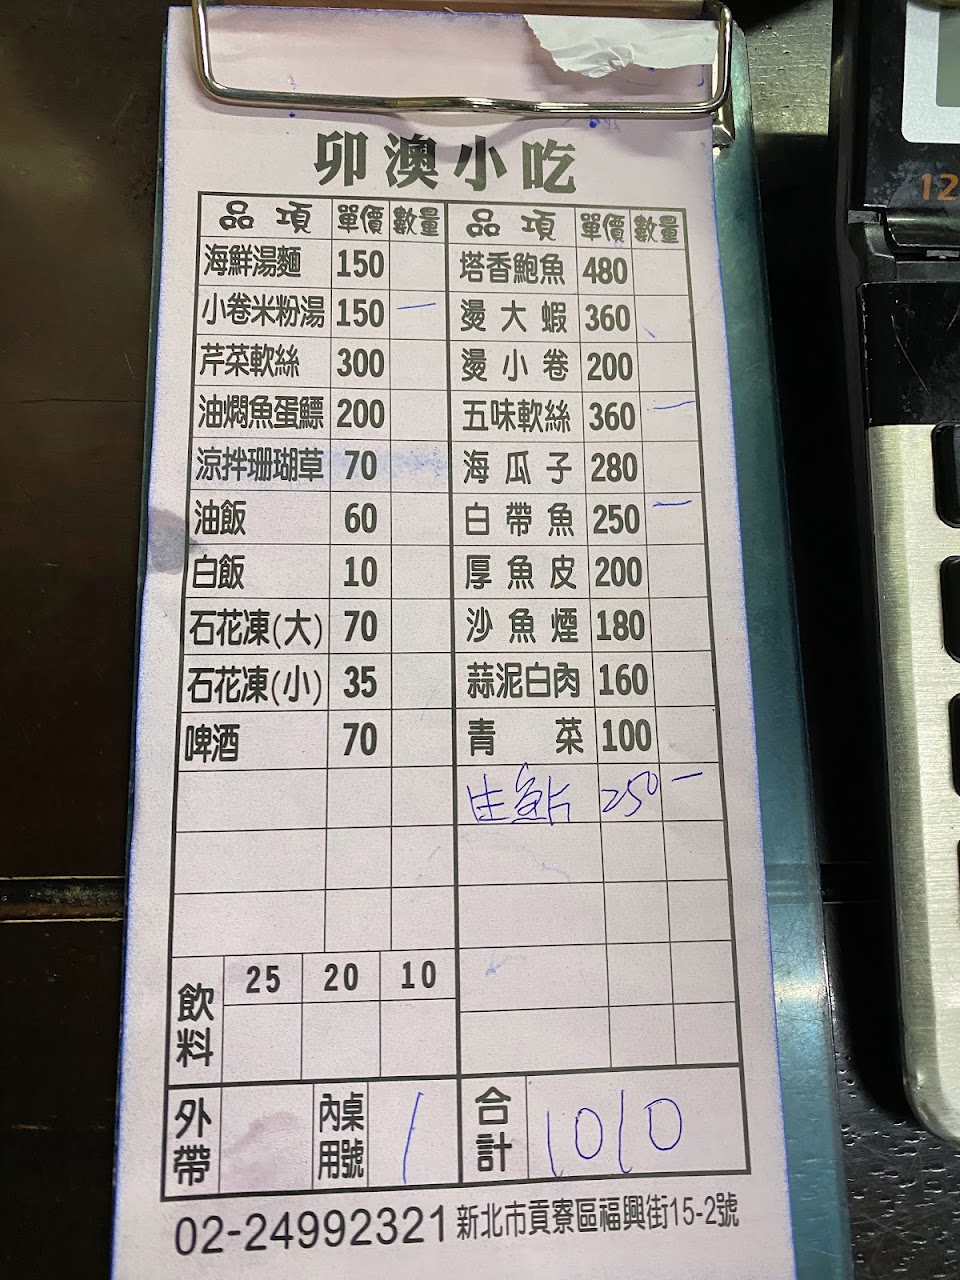 卯澳小吃
品項 單價 數量 品項 單價 數量
海鮮湯麵 150 塔香鮑魚 480
小卷米粉湯 150 一 燙大蝦 360
芹菜軟絲 300 燙小卷 200
油燜魚蛋鰾 200 五味軟絲 360 一
涼拌珊瑚草 70 海瓜子 280
油飯 60 白帶魚 250 一
白飯 10 厚魚皮 200
石花凍(大) 70 沙魚煙 180
石花凍(小) 35 蒜泥白肉 160
啤酒 70 青菜 100
生魚片 250 一
飲料 25 20 10
外帶 內用桌號 1 合計 1010
02-24992321 新北市貢寮區福興街15-2號
12